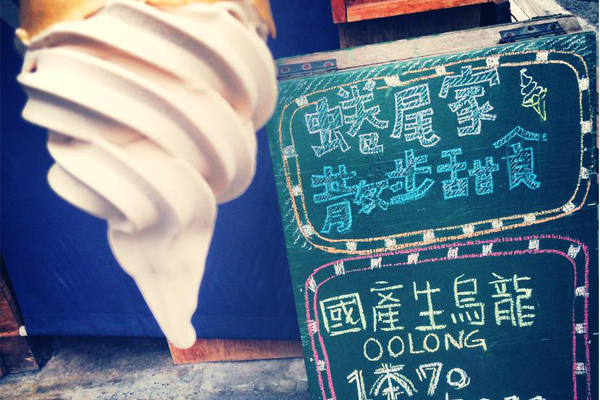 蜷尾家
散步甜食
國產生烏龍
OOLONG
1本70